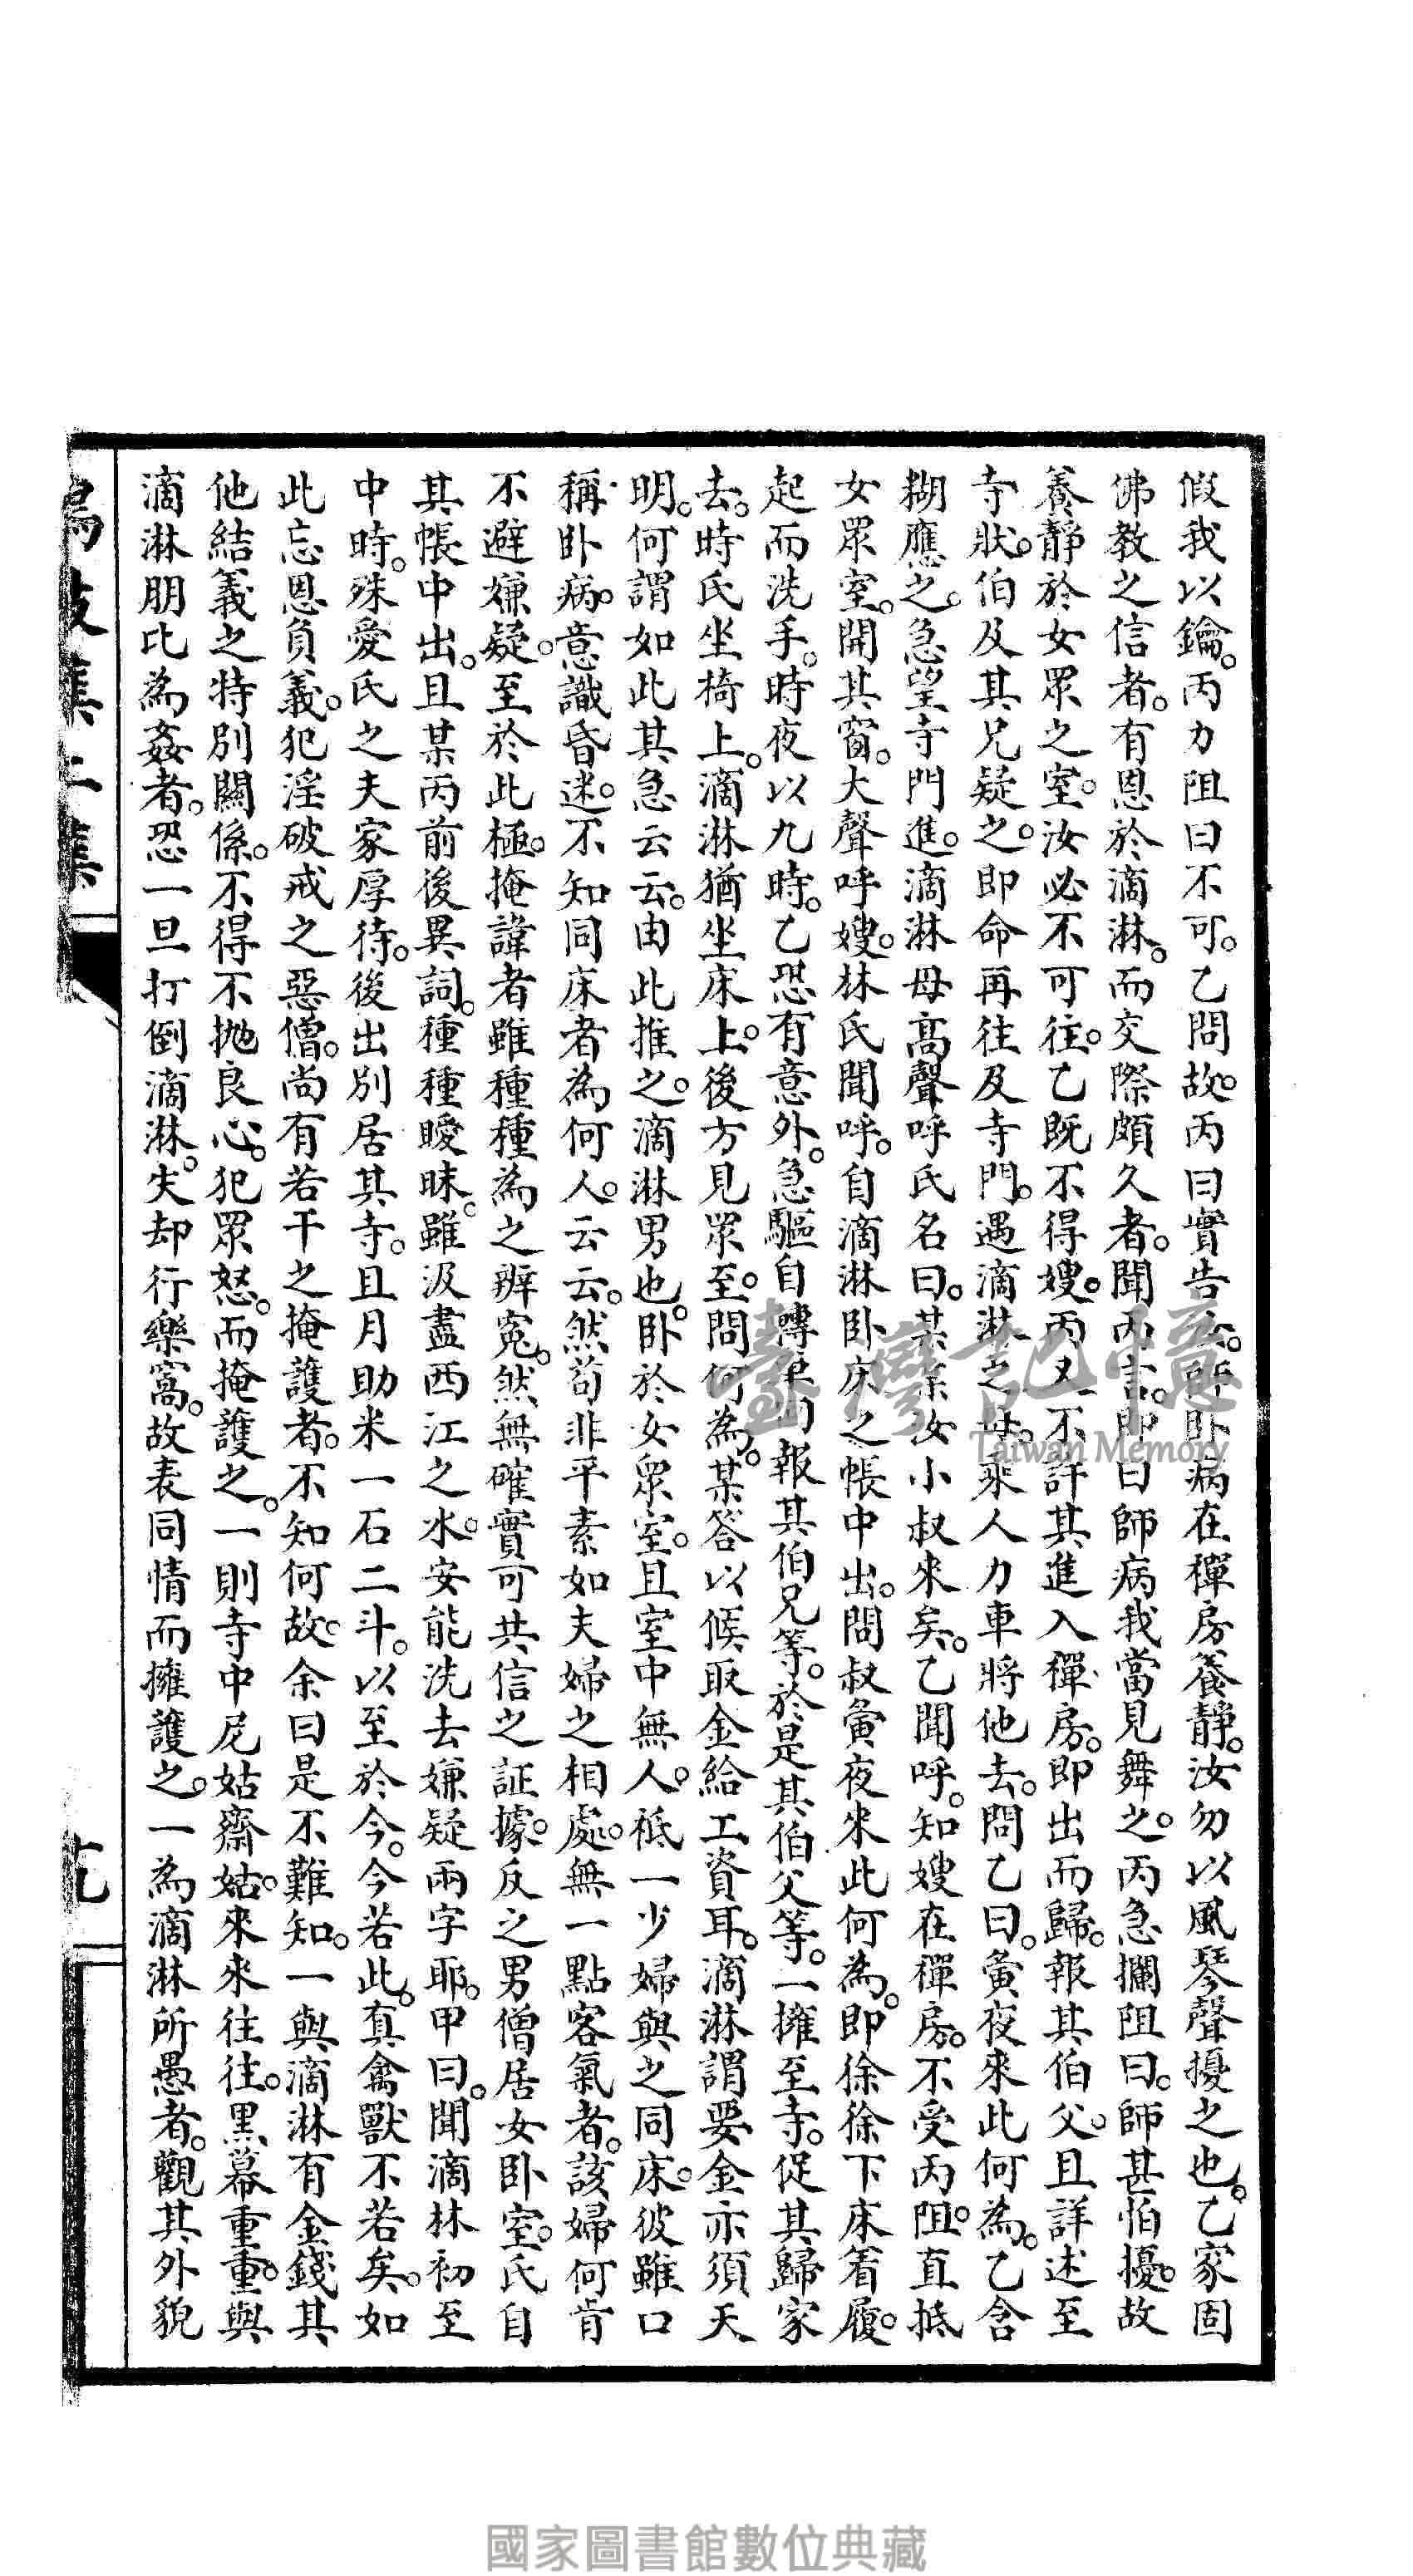 假我以鑰。丙力阻曰不可。乙問故。丙曰實告汝。師卧病在禪房養靜。汝勿以風琴聲擾之也。乙家固
佛教之信者。有恩於滴淋。而交際頗久者。聞丙言。即曰師病我當見舞之。丙急攔阻曰。師甚怕擾。故
養靜於女眾之室。汝必不可往。乙既不得嫂。丙又不許其進入禪房。即出而歸。報其伯父。且詳述至
寺狀。伯及其兄疑之。即命再往及寺門。遇滴淋之母。乘人力車將他去。問乙曰。夤夜來此何為。乙含
糊應之。急望寺門進。滴淋母高聲呼氏名曰。某某汝小叔來矣。乙聞呼。知嫂在禪房。不受丙阻。直抵
女眾室。開其窗。大聲呼嫂。林氏聞呼。自滴淋卧床之帳中出。問叔夤夜來此何為。即徐徐下床着履。
起而洗手。時夜以九時。乙恐有意外。急驅自轉車回報其伯兄等。於是其伯父等。一擁至寺。促其歸家
去。時氏坐椅上。滴淋猶坐床上。後方見眾至。問何為。某答以候取金給工資耳。滴淋謂要金亦須天
明。何謂如此其急云云。由此推之。滴淋男也。卧於女眾室。且室中無人。祗一少婦與之同床。彼雖口
稱卧病。意識昏迷。不知同床者為何人。云云。然苟非平素如夫婦之相處。無一點客氣者。該婦何肯
不避嫌疑。至於此極。掩諱者雖種種為之辨冤。然無確實可共信之証據。反之男僧居女卧室。氏自
其帳中出。且某丙前後異詞。種種曖昧。雖汲盡西江之水。安能洗去嫌疑兩字耶。甲曰。聞滴林初至
中時。殊愛氏之夫家厚待。後出別居其寺。且月助米一石二斗。以至於今。今若此。真禽獸不若矣。如
此忘恩負義。犯淫破戒之惡僧。尚有若干之掩護者。不知何故。余曰是不難知。一與滴淋有金錢其
他結義之特別關係。不得不拋良心。犯眾怒。而掩護之。一則寺中尼姑齋姑。來來往往。黑幕重重。與
滴淋朋比為姦者。恐一旦打倒滴淋。失却行樂窩。故表同情而擁護之。一為滴淋所愚者。觀其外貌
鳴鼓集二集
十九
臺灣記憶
Taiwan Memory
國家圖書館數位典藏